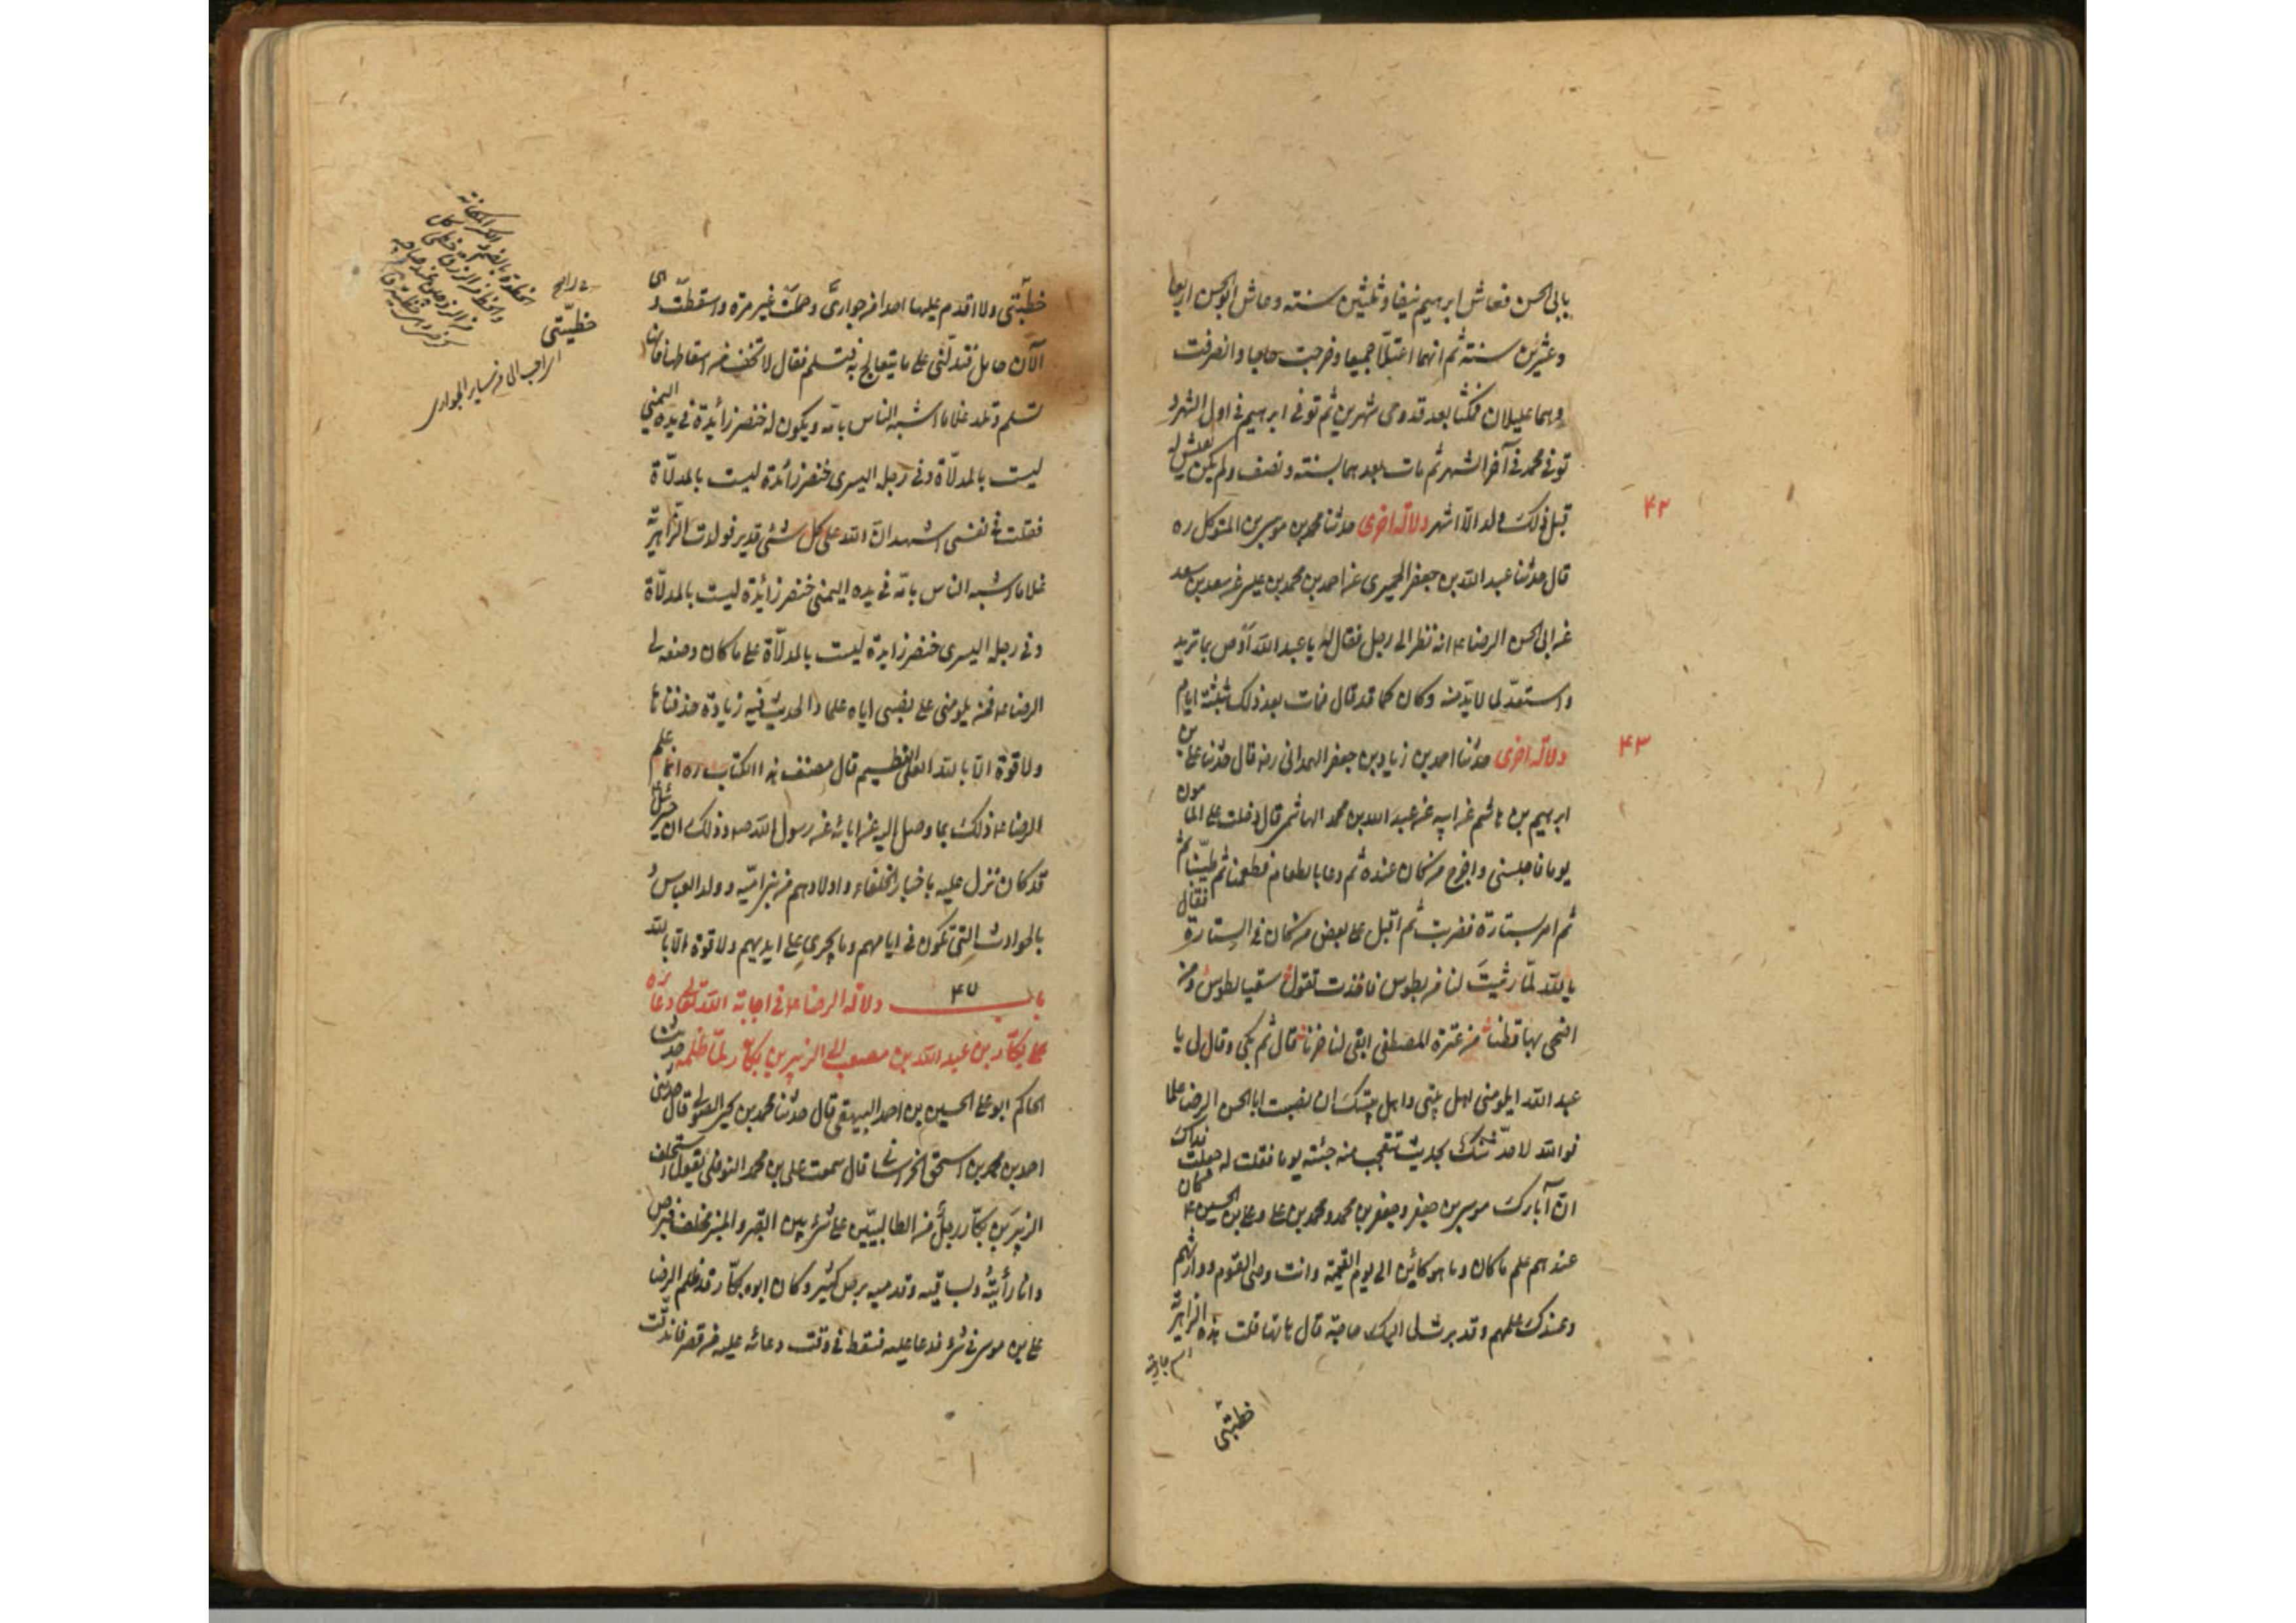 بابى الحسن فعاش ابرهيم نيفا و ثلثين سنته وعاش ابو الحسن اربعا
وعشرين سنته ثم انهما اعتلّا جميعا وخرجت حاجا وانصرفت
وهما عليلان فمكثا بعد قدومى شهرين ثم توفى ابرهيم فى اول الشهر و
توفى محمد فى آخر الشهر ثم مات بعدهما بسنته ونصف ولم يكن يعيش له
قبل ذلك ولد الّا اشهر دلالة اخرى حدثنا محمد بن موسى بن المتوكل ره
۴۲
قال حدثنا عبد الله بن جعفر الحميرى عن احمد بن محمد بن عيسى عن سعد بن سعد
عن ابى الحسن الرضا ع انه نظر الى رجل فقال له يا عبد الله اوص بما تريد
واستعدّ لما لا بدّ منه وكان كما قد قال فمات بعد ذلك بثلثة ايام
دلالة اخرى حدثنا احمد بن زياد بن جعفر الهمدانى رضه قال حدثنا على بن
۴۳
ابرهيم بن هاشم عن ابيه عن عبد الله بن محمد الهاشمى قال دخلت على المامون
يوما فاجلسنى واخرج من كان عنده ثم دعا بالطعام فطعمنا ثم طيّبنا ثم
ثم امر بستارة فضربت ثم اقبل على بعض من كان فى الستارة فقال
بالله لمّا رثيت لنا من بطوس فاخذت تقول سقيا لطوس ومن
اضحى بها قطنا من عترة المصطفى ابقى لنا حزنا قال ثم بكى وقال لى يا
عبد الله ايلومنى اهل بيتى واهل بيتك ان نصبت ابا الحسن الرضا علما
فو الله لاحدّثنك بحديث تتعجب منه جئته يوما فقلت له جعلت فداك
انّ آباءك موسى بن جعفر وجعفر بن محمد ومحمد بن على وعلى بن الحسين ع كان
عندهم علم ما كان وما هو كائن الى يوم القيمة وانت وصى القوم ووارثهم
وعندك علمهم وقد بدت لى اليك حاجة قال هاتها قلت هذه الزاهرية
اسم جارية
خطيّتى
خطيّتى ولا اقدم عليها احدا من جوارىّ وحملت غير مرة واسقطت وهى
الآن حامل فتدلّنى على ما يتعالج به فتسلم فقال لا تخف من اسقاطها فانها
تسلم وتلد غلاما اشبه الناس بامّه ويكون له خنصر زائدة فى يده اليمنى
ليست بالمدلّاة وفى رجله اليسرى خنصر زائدة ليست بالمدلّاة
فقلت فى نفسى اشهد انّ الله على كل شئ قدير فولدت الزاهريّة
غلاما اشبه الناس بامّه فى يده اليمنى خنصر زائدة ليست بالمدلّاة
وفى رجله اليسرى خنصر زايدة ليست بالمدلّاة على ما كان وصفه لى
الرضا ع فمن يلومنى على نصبى اياه علما والحديث فيه زيادة حذفناها
ولا قوة الّا بالله العلى العظيم قال مصنف هذا الكتاب ره انما علم
الرضا ع ذلك بما وصل اليه عن ابائه عن رسول الله ص وذلك ان جبرئيل
قد كان نزل عليه باخبار الخلفاء واولادهم من بنى اميّه وولد العباس و
بالحوادث التى تكون فى ايامهم وما يجرى على ايديهم ولا قوة الّا بالله
باب ۴۷ دلالة الرضا ع فى اجابة الله تعالى دعاءه
على بكّار بن عبد الله بن مصعب بن الزبير بن بكّار لمّا ظلمه حدثنا
الحاكم ابو على الحسين بن احمد البيهقى قال حدثنا محمد بن يحيى الصولى قال حدثنى
احمد بن محمد بن اسحق الخراسانى قال سمعت على بن محمد النوفلى يقول استحلف
الزبير بن بكّار رجل من الطالبيّين على شئ بين القبر والمنبر فحلف فبرص
وانا رأيته وبساقيه وقدميه برص كثير وكان ابوه بكّار قد ظلم الرضا
على بن موسى فى شئ فدعا عليه فسقط فى وقت دعائه عليه من قصر فاندقّت
خطيّتى
اى احب الىّ من ساير الجوارى